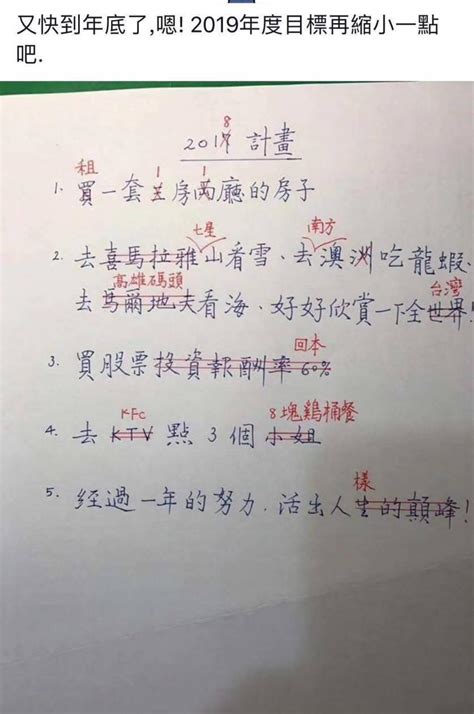 又快到年底了,嗯! 2019年度目標再縮小一點
吧.
8
2017 計畫
租 1 1
1. 買一套三房兩廳的房子
七星 南方
2. 去喜馬拉雅山看雪、去澳洲吃龍蝦、
高雄碼頭 台灣
去馬爾地夫看海、好好欣賞一下全世界!
回本
3. 買股票投資報酬率 60%
KFC 8塊鷄桶餐
4. 去 KTV 點 3 個 小姐
樣
5. 經過一年的努力, 活出人生的顛峰!